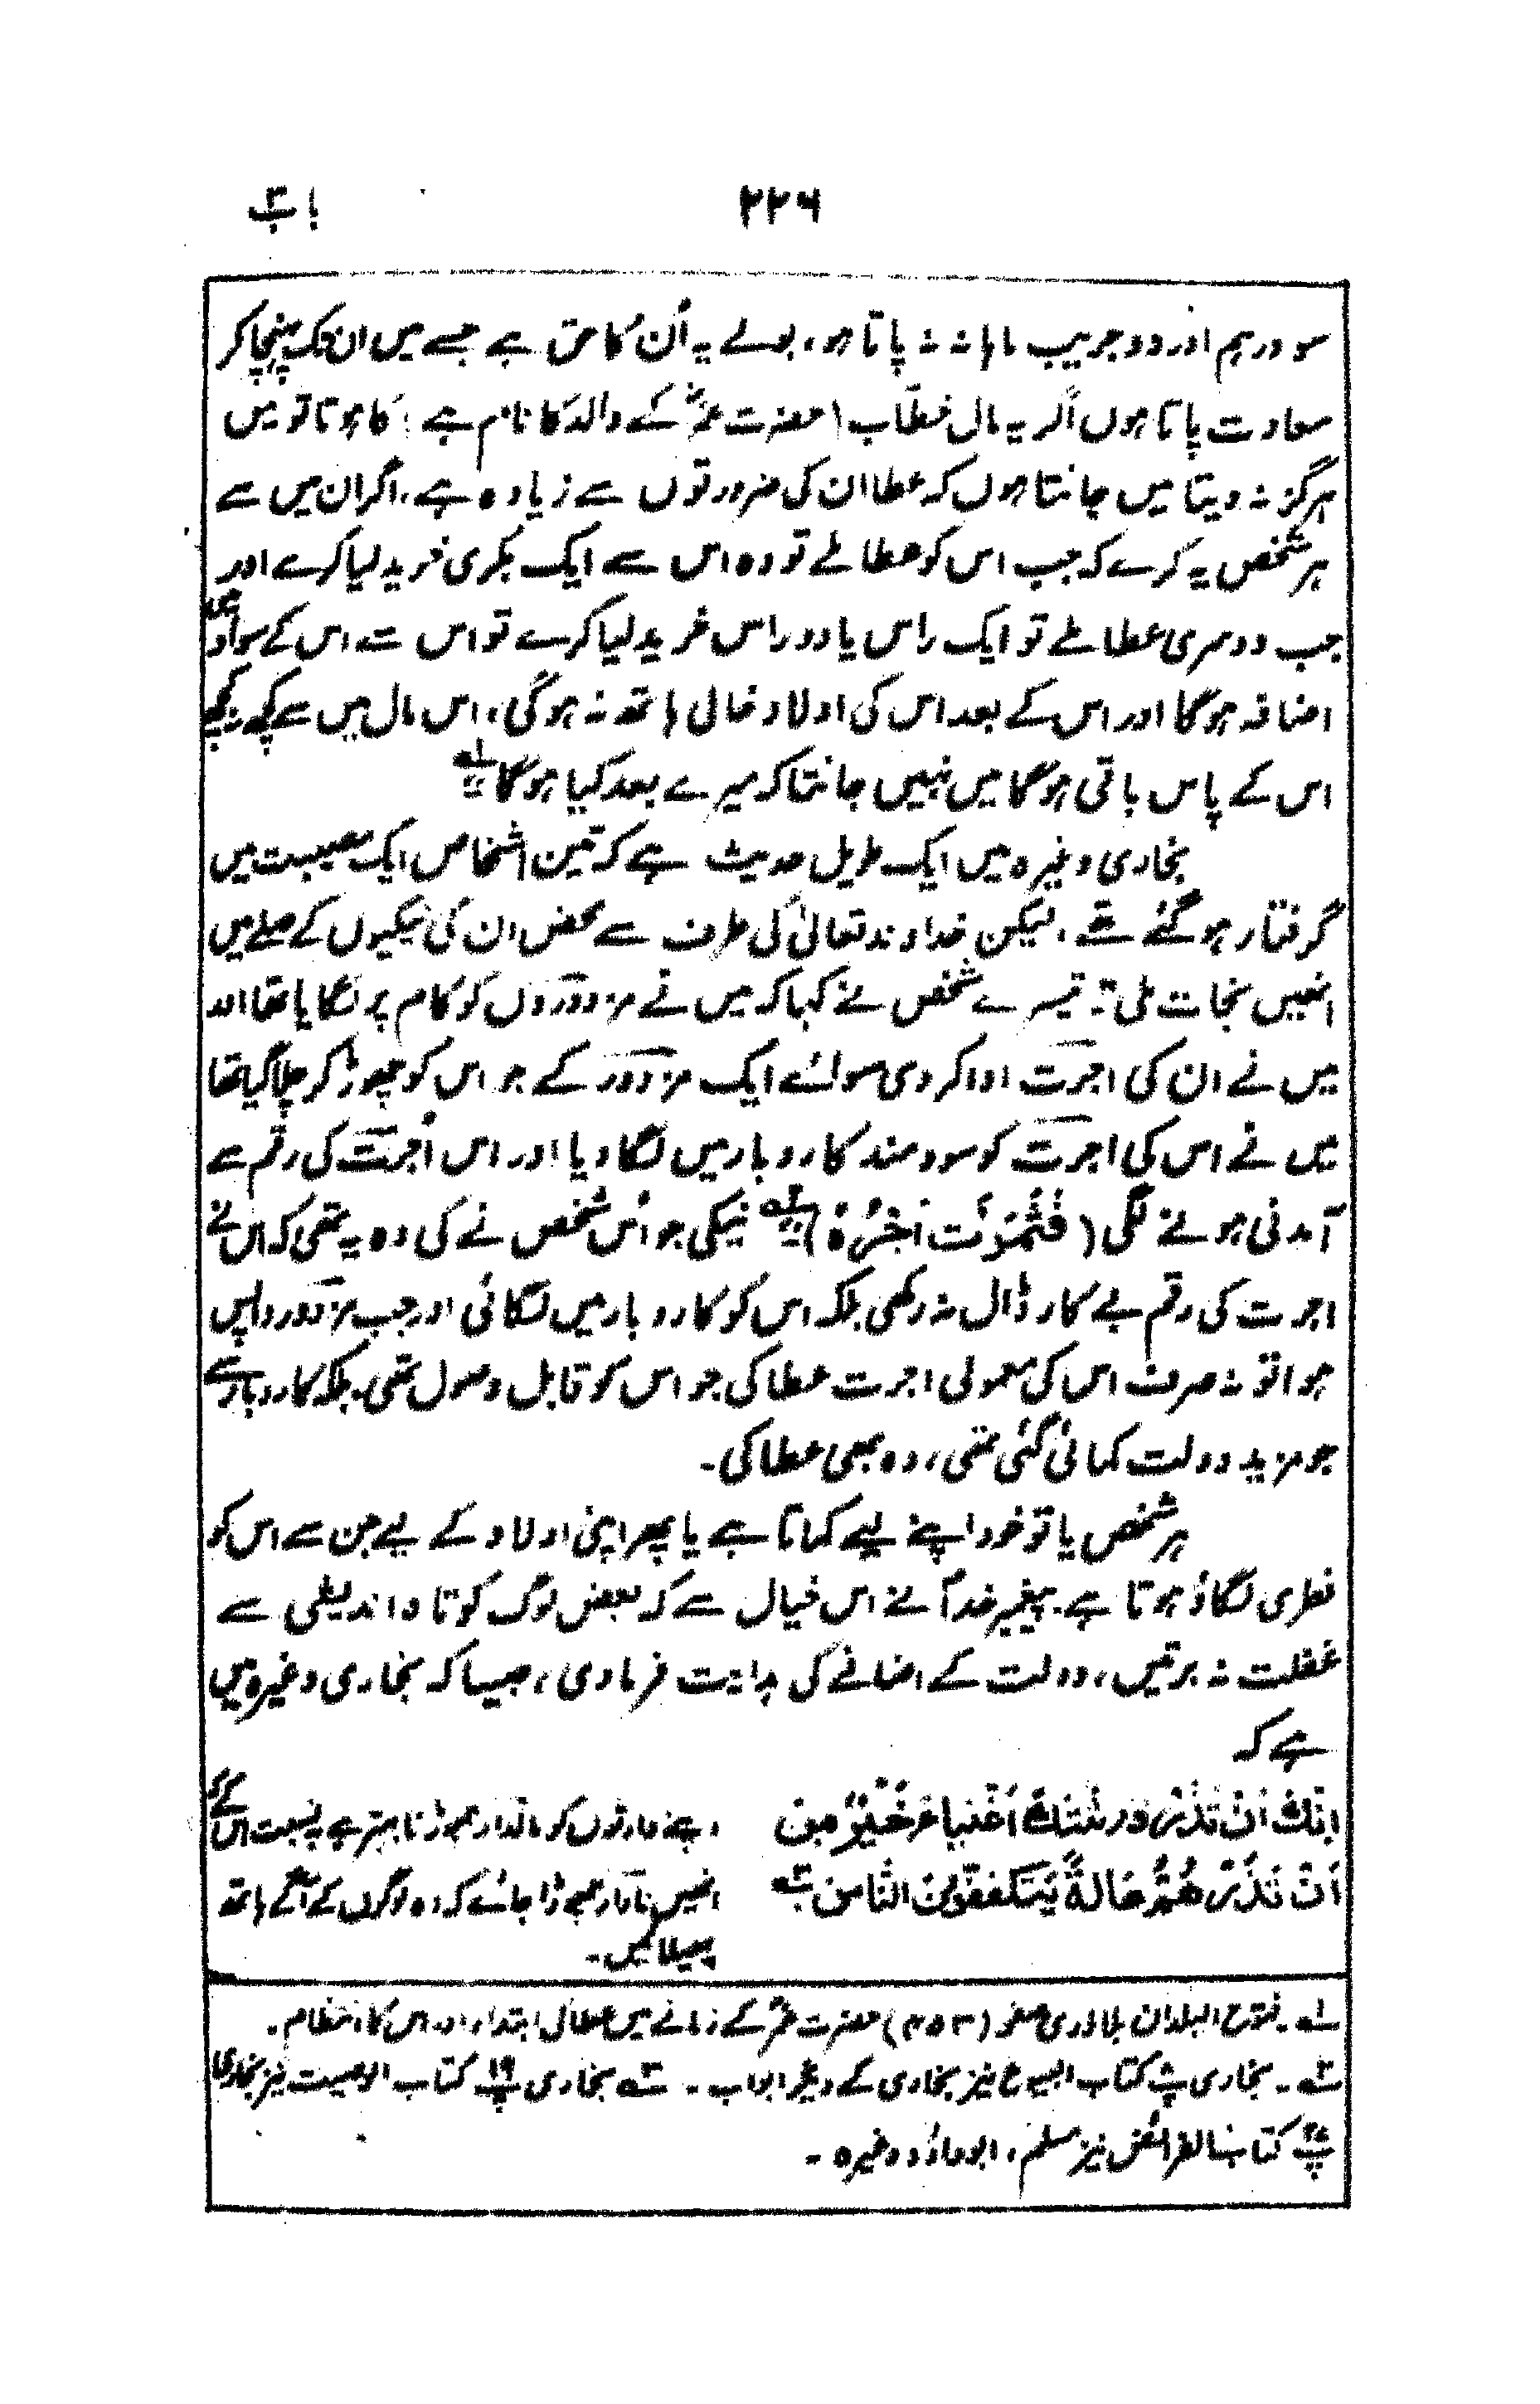 ۲۲۶
باب ۳
سو درہم اور دو جریب ماہانہ نہ پاتا ہو، بولے یہ اُن کا حق ہے جسے میں ان تک پہنچا کر
سعادت پاتا ہوں اگر یہ مال خطّاب (حضرت عمرؓ کے والد کا نام ہے) کا ہوتا تو میں
ہرگز نہ دیتا میں جانتا ہوں کہ عطا ان کی ضرورتوں سے زیادہ ہے، اگر ان میں سے
ہر شخص یہ کرے کہ جب اس کو عطا ملے تو وہ اس سے ایک بکری خرید لیا کرے اور
جب دوسری عطا ملے تو ایک راس یا دو راس خرید لیا کرے تو اس سے اس کے سواد میں
اضافہ ہوگا اور اس کے بعد اس کی اولاد خالی ہاتھ نہ ہوگی، اس مال میں سے کچھ نہ کچھ
اس کے پاس باقی ہوگا میں نہیں جانتا کہ میرے بعد کیا ہوگا" ۱؎
بخاری وغیرہ میں ایک طویل حدیث ہے کہ تین اشخاص ایک مصیبت میں
گرفتار ہو گئے تھے، لیکن خداوند تعالیٰ کی طرف سے محض ان کی نیکیوں کے صلے میں
انھیں نجات ملی: تیسرے شخص نے کہا کہ میں نے مزدوروں کو کام پر لگایا تھا اور
میں نے ان کی اجرت ادا کر دی سوائے ایک مزدور کے جو اس کو چھوڑ کر چلا گیا تھا
میں نے اس کی اجرت کو سود مند کاروبار میں لگا دیا اور اس اُجرت کی رقم سے
آمدنی ہونے لگی (فَثَمَّرْتُ اَجْرَہٗ)" ۲؎ نیکی جو اُس شخص نے کی وہ یہ تھی کہ اس نے
اجرت کی رقم بے کار ڈال نہ رکھی بلکہ اس کو کاروبار میں لگائی اور جب مزدور واپس
ہوا تو نہ صرف اس کی معمولی اجرت عطا کی جو اس کو قابل وصول تھی، بلکہ کاروبار سے
جو مزید دولت کمائی گئی تھی، وہ بھی عطا کی۔
ہر شخص یا تو خود اپنے لیے کماتا ہے یا پھر اپنی اولاد کے لیے جن سے اس کو
فطری لگاؤ ہوتا ہے۔ پیغمبر خداؐ نے اس خیال سے کہ بعض لوگ کوتاہ اندیشی سے
غفلت نہ برتیں، دولت کے اضافے کی ہدایت فرما دی، جیسا کہ بخاری وغیرہ میں
ہے کہ
اِنَّكَ اَنْ تَذَرَ وَرَثَتَكَ اَغْنِيَاءَ خَيْرٌ مِنْ
اَنْ تَذَرَهُمْ عَالَةً يَتَكَفَّفُوْنَ النَّاسَ ۳؎
اپنے وارثوں کو مالدار چھوڑنا بہتر ہے بہ نسبت اس کے
انھیں نادار چھوڑا جائے کہ وہ لوگوں کے آگے ہاتھ
پھیلائیں۔
۱؎۔ فتوح البلدان بلاذری صفحہ (۴۵۲) حضرت عمرؓ کے زمانے میں عطا کی ابتداء اور اس کا انتظام۔
۲؎۔ بخاری پ کتاب البیوع نیز بخاری کے دیگر ابواب۔ ۳؎ بخاری پ کتاب الوصیت نیز بخاری
پ کتاب الفرائض نیز مسلم، ابوداؤد وغیرہ۔